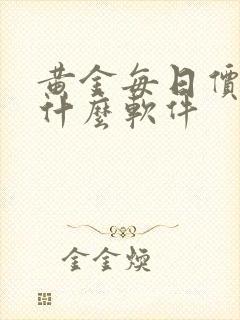 黃金每日價
什麼軟件
金金煥